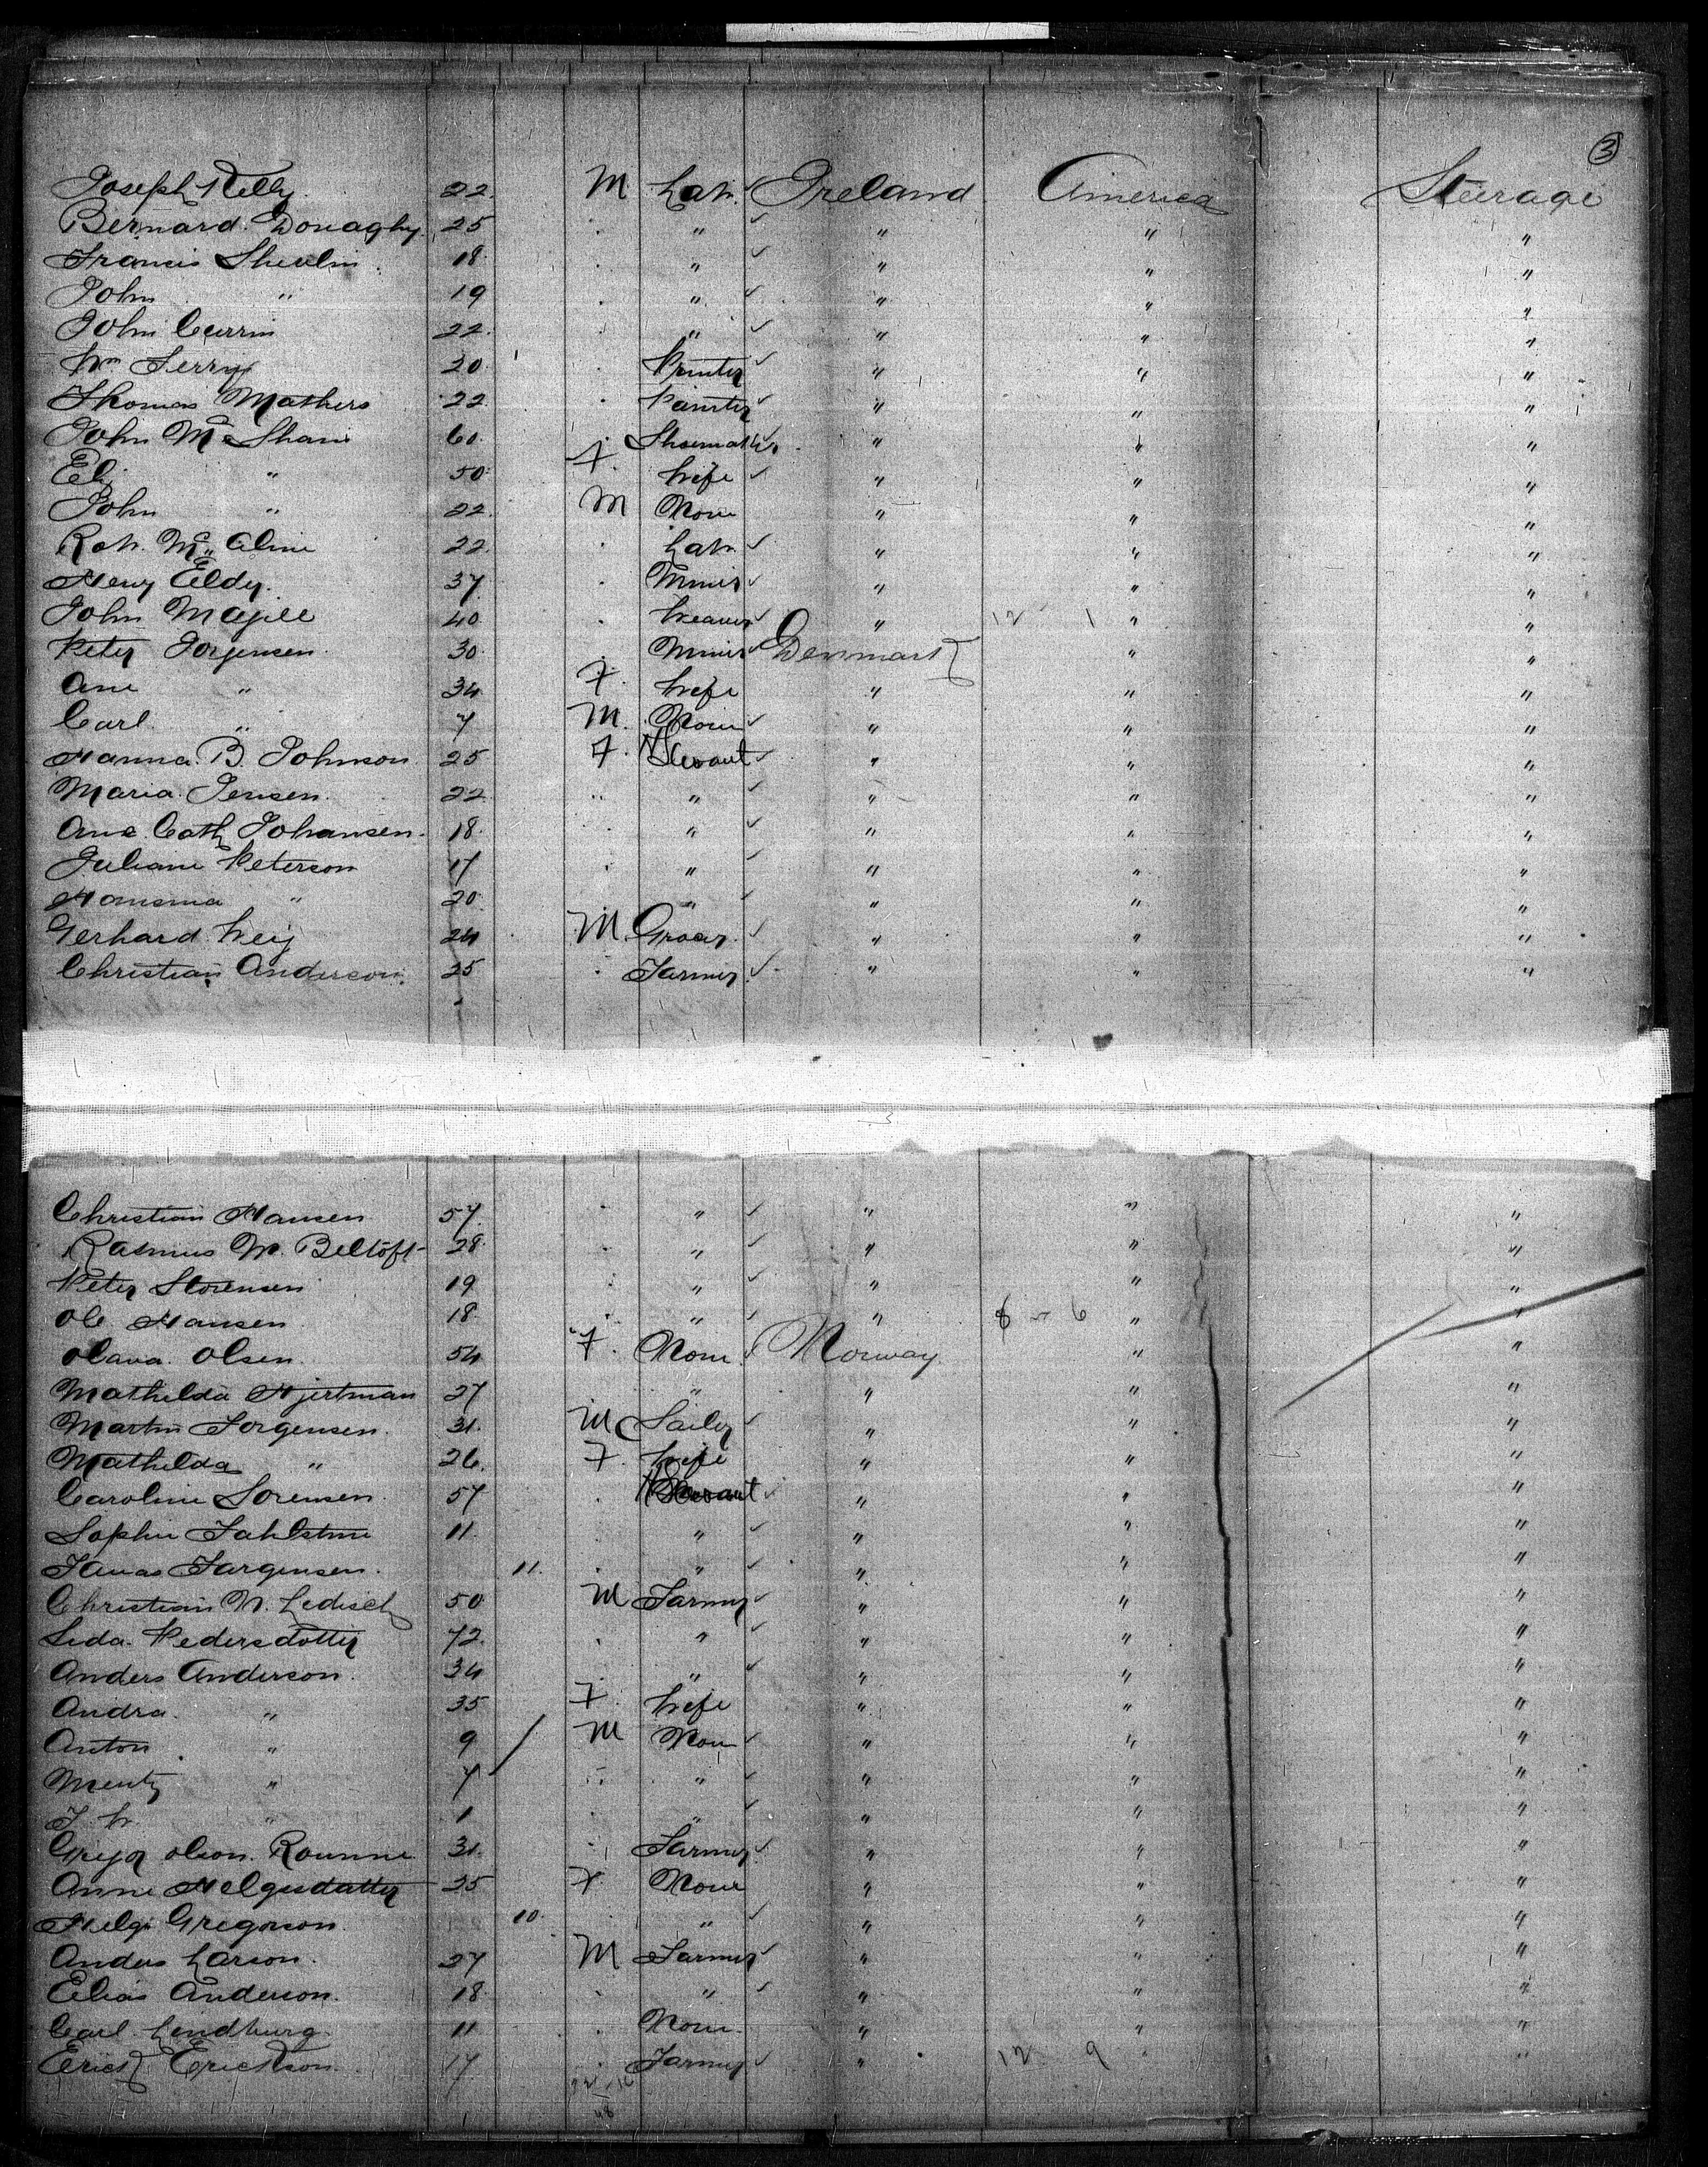 3
Joseph Kelly 22 M Lab. Ireland America Steerage
Bernard Donaghy 25 " " " "
Francis Shevlin 18 " " " "
John " 19 " " " "
John Currin 22 " " " "
Wm Ferry 20 Printer " " "
Thomas Mathers 22 Painter " " "
John McShane 60 Shoemaker " " "
Eliz " 50 F Wife " " "
John " 22 M None " " "
Rob. Mc Clure 22 Lab. " " "
Henry Elder 37 Miner " " "
John Magill 40 Weaver " 12 1 " "
Peter Jorgensen 30 Miner Denmark " "
Ane " 34 F. Wife " " "
Carl " 7 M. None " " "
Hanna B. Johnson 25 F. Servant " " "
Maria Jensen 22 " " " " "
Ane Cath Johansen 18 " " " "
Juliane Peterson 17 " " " "
Hansina " 20 " " " "
Gerhard 24 M Grocer " " "
Christian Anderson 25 Farmer " " "
Christian Hansen 57 " " " "
Rasmus M. Beltoft 28 " " " "
Peter Storensen 19 " " " "
Ole Hansen 18 " " 8 6 " "
Olava Olsen 54 F. None Norway " "
Mathilda Hjertman 27 " " " "
Martin Jorgensen 31 M Sailer " " "
Mathilda " 26 F. Wife " " "
Caroline Sorensen 57 Servant " " "
Sophie 11 " " " "
Jorgensen 11 " " " "
Christian N. 50 M Farmer " " "
Pedersdotter 72 " " " "
Anders Anderson 34 " " " "
Andra " 35 F. Wife " " "
Anton " 9 M None " " "
Mentz " 7 " " " " "
" 1 " " " "
Gregor Olson Rounne 31 Farmer " " "
Anne Helgesdatter 35 F None " " "
Helge Gregorson 10 " " " "
Anders Larson 27 M Farmer " " "
Elias Anderson 18 " " " "
Carl Lendburg 11 None " " "
Erick Erickson 17 Farmer " 12 9 " "
48